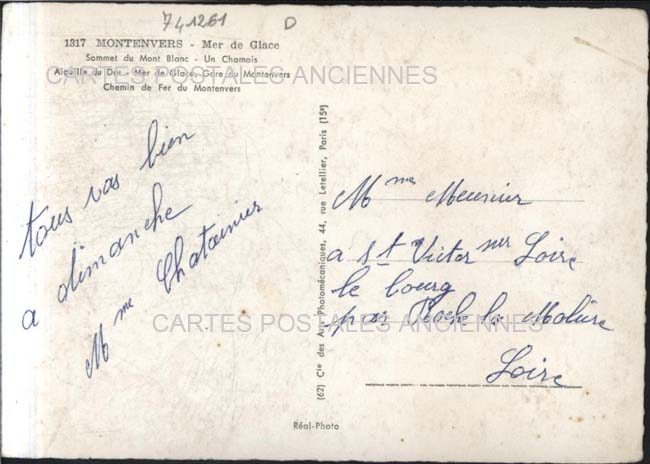 741261 D
1317 MONTENVERS - Mer de Glace
Sommet du Mont Blanc - Un Chamois
Aiguille du Dru - Mer de Glace, Gare au Montenvers
Chemin de Fer du Montenvers
CARTES POSTALES ANCIENNES
tous vas bien
a dimanche
Mme Chatainier
(62) Cie des Arts Photomécaniques, 44, rue Letellier, Paris (15e)
Mme Meunier
a St Victor sur Loire
le bourg
par Roche la Molière
Loire
CARTES POSTALES ANCIENNES
Réal-Photo